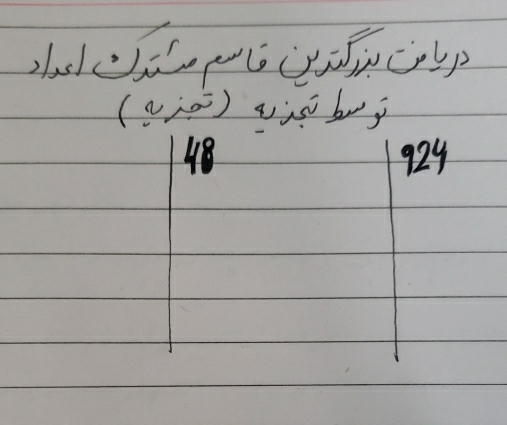 دریافت بزرگترین قاسم مشترک اعداد
توسط تجزیه (تجزیه)
48 924